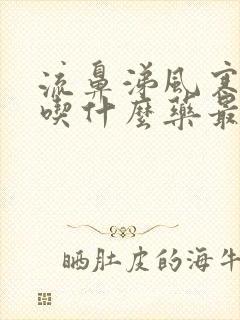 流鼻涕風寒
喫什麼藥最
晒肚皮的海牛